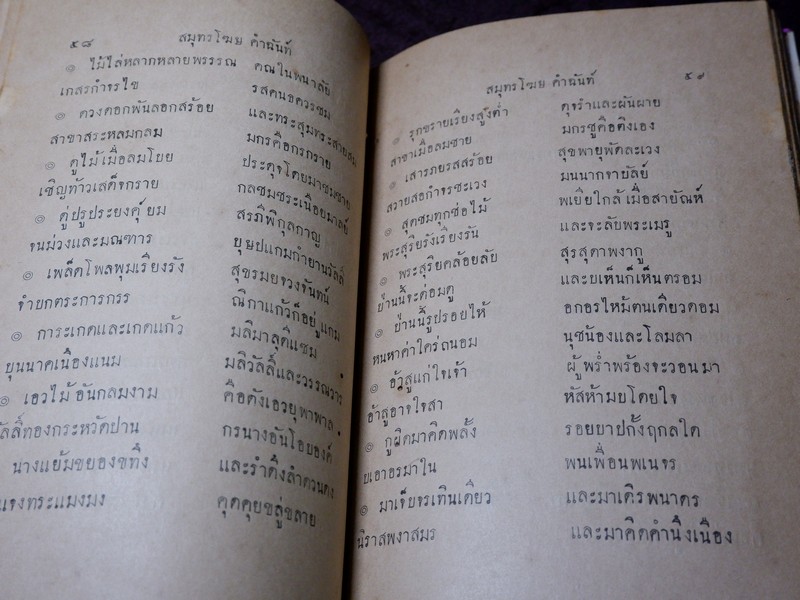 ๕๘ สมุทรโฆษ คำฉันท์
๏ ไม้ไล่หลากหลายพรรณ คณในพนาลัย
เกสรกำจรไข รสคนธควรชม
๏ ดวงดอกพันลอกสร้อย และทระสุมทระสายสม
สาขาสระหลมกลม มกรคือกรกราย
๏ ดูไม้เมื่อลมโบย ประดุจโดยมาชมชาย
เชิญท้าวเสด็จกราย กลชมชระเนือยมาลย์
๏ ดู่ปรูประยงค์ยม สรภีพิกุลกาญ
จนม่วงและมณฑาร บุษปแกมกำยานวัลลิ์
๏ เพล็ดโพลพุมเรียงรัง สุขรมยจวงจันทน์
จำบกตระการกรร ณีกาแก้วก็อยู่แกม
๏ การะเกดและเกดแก้ว มลิมาลุดีแซม
บุนนาคเนืองแนม มลิวัลลิ์และวรรณวาร
๏ เอวไม้อันกลมงาม คือดังเอวยุพาพาล
ลัลลิ์ทองกระหวัดปาน กรนางอันโอบองค์
นางแย้มขยองขทิง และรำดึงลำดวนดง
แจงทระแมงมง คุดคุยขลู่ขลาย
สมุทรโฆษ คำฉันท์ ๕๙
๏ รุกขรายเรียงสูงต่ำ ดุจรำและผันผาย
สาขาเมื่อลมชาย มกรชูคือดึงเอง
๏ เสารภยรสสร้อย สุขพายุพัดละเวง
สวายสอกำจรชะเวง มนนากจายัลย์
๏ สุดชมทุกช่อไม้ พเยียใกล้เมื่อสายัณห์
พระสุริยรังเรียงรัน และจะลับพระเมรุ
๏ พระสุริยคล้อยลับ สุรสุดาพงากู
ย่านนี้จะต่อมดู และบเห็นก็เห็นตรอม
๏ ย่านนี้รูปรอยไห้ อกอรไหม้ตนเดียวดอม
หนหาค่าใคร่ถนอม นุชน้องและโลมลา
๏ อ้าสูแก่ใจเจ้า ผู้พร่ำพร้องจะวอนมา
อ้าสูอาจใจสา หัสห้ามบโดยใจ
๏ กูผิดมาคิดพลั้ง รอยบาปกั้งฤกลใด
บเอาอรมาใน พนเพื่อนพเนจร
๏ มาเจียจรเทินเดียว และมาเดิรพนาดร
นิราสพงาสมร และมาคิดคำนึงเนือง